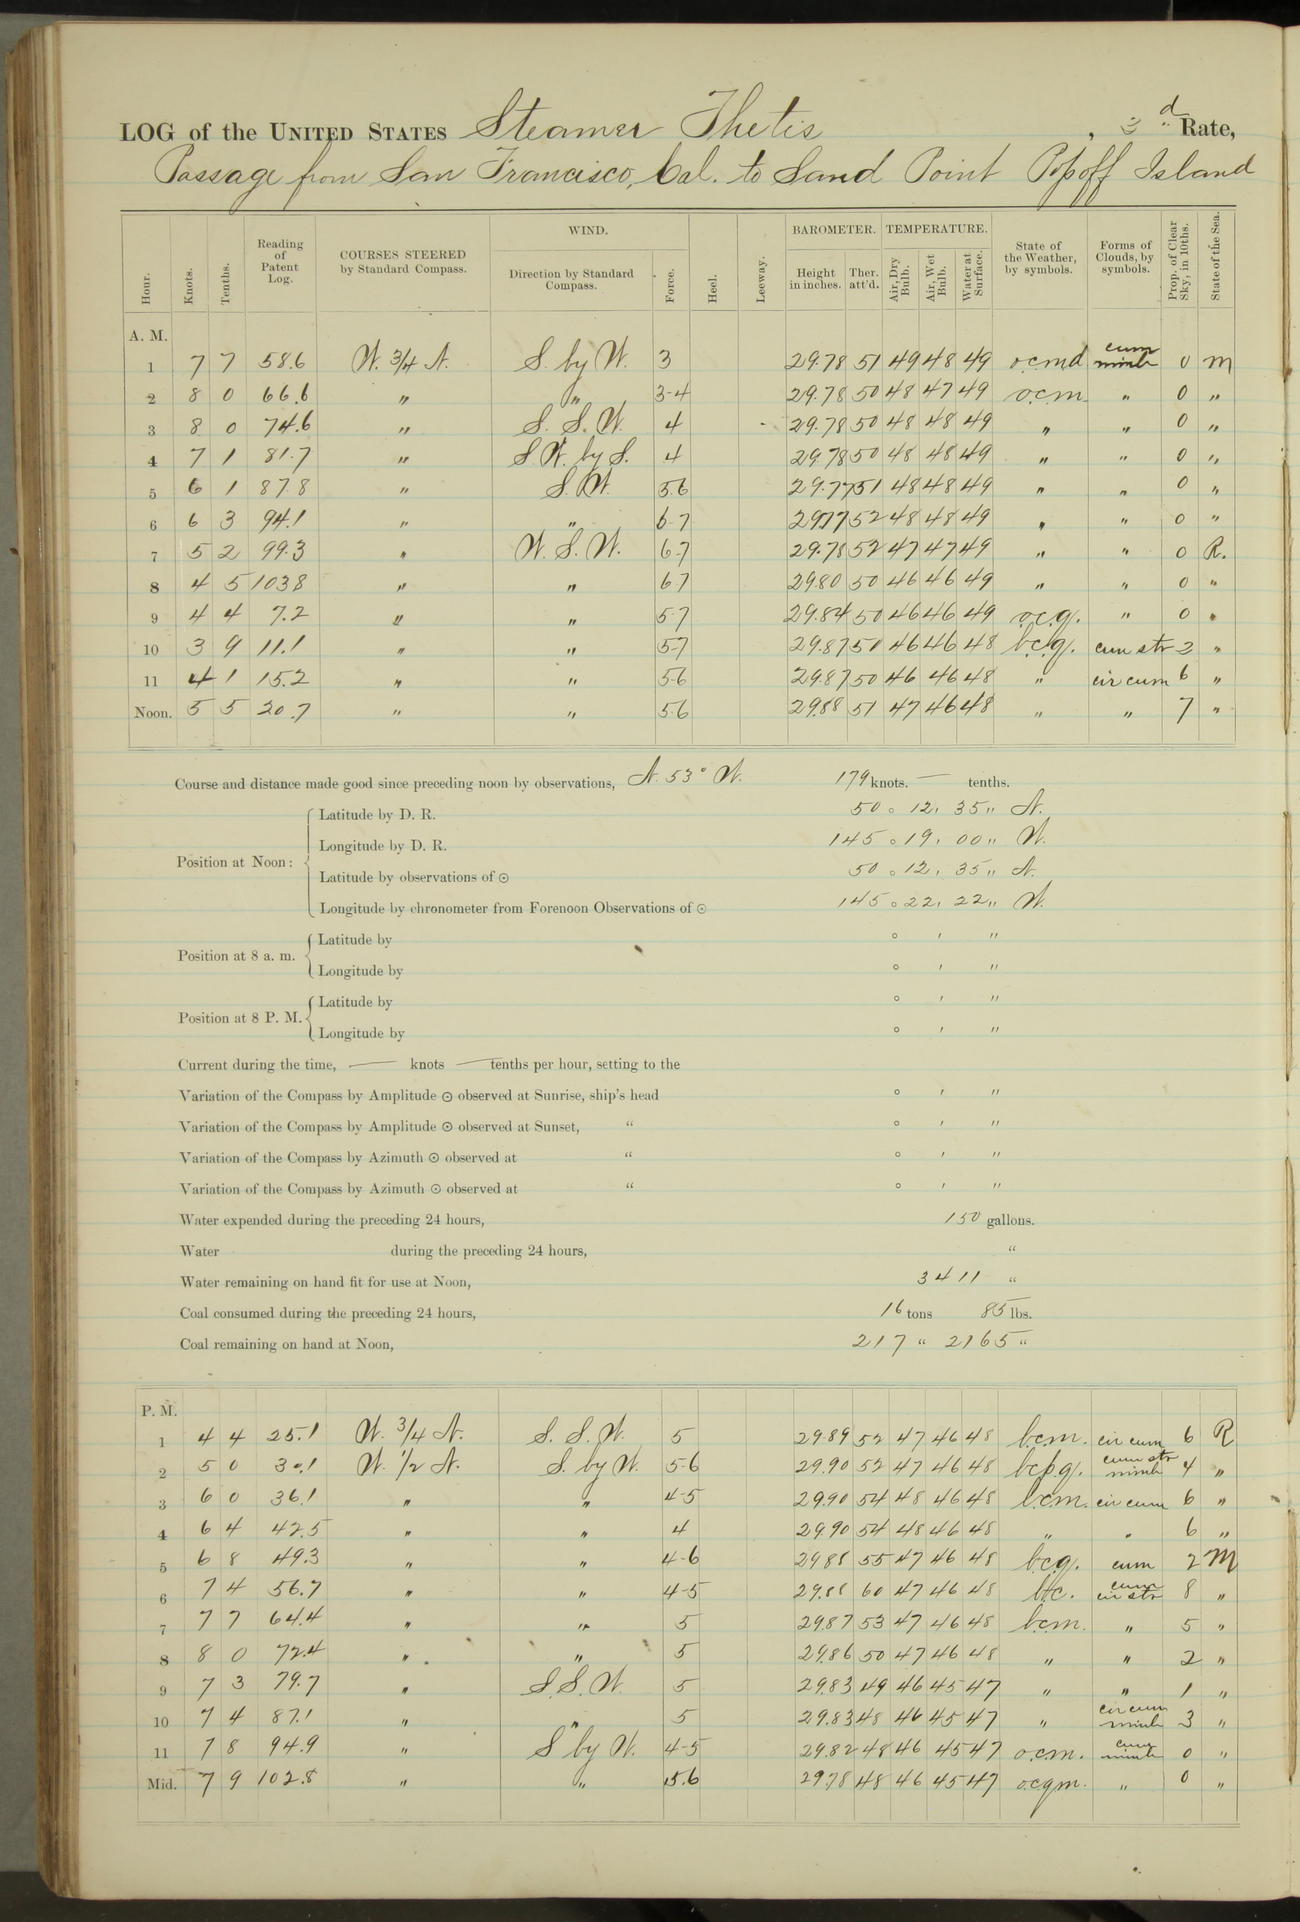 LOG of the UNITED STATES Steamer Thetis , 3d Rate,
Passage from San Francisco, Cal. to Sand Point Popoff Island
Hour. Knots. Tenths. Reading of Patent Log. COURSES STEERED by Standard Compass. WIND. Direction by Standard Compass. Force. Heel. Leeway. BAROMETER. Height in inches. Ther. att'd. TEMPERATURE. Air, Dry Bulb. Air, Wet Bulb. Water at Surface. State of the Weather, by symbols. Forms of Clouds, by symbols. Prop. of Clear Sky, in 10ths. State of the Sea.
A. M.
1 7 7 58.6 W. 3/4 N. S. by W. 3 29.78 51 49 48 49 o.c.m.d cum nimb 0 M
2 8 0 66.6 " " 3-4 29.78 50 48 47 49 o.c.m. " 0 "
3 8 0 74.6 " S. S. W. 4 29.78 50 48 48 49 " " 0 "
4 7 1 81.7 " S.W. by S. 4 29.78 50 48 48 49 " " 0 "
5 6 1 87.8 " S.W. 5.6 29.77 51 48 48 49 " " 0 "
6 6 3 94.1 " " 6-7 29.77 52 48 48 49 " " 0 "
7 5 2 99.3 " W. S. W. 6.7 29.78 52 47 47 49 " " 0 R.
8 4 5 103.8 " " 6.7 29.80 50 46 46 49 " " 0 "
9 4 4 7.2 " " 5-7 29.84 50 46 46 49 o.c.g. " 0 "
10 3 9 11.1 " " 5-7 29.87 50 46 46 48 b.c.g. cum str 2 "
11 4 1 15.2 " " 5-6 29.87 50 46 46 48 " cir cum 6 "
Noon. 5 5 20.7 " " 5-6 29.88 51 47 46 48 " " 7 "
Course and distance made good since preceding noon by observations, N. 53° W. 179 knots. — tenths.
Position at Noon:
Latitude by D. R. 50 ° 12 ' 35 " N.
Longitude by D. R. 145 ° 19 ' 00 " W.
Latitude by observations of ☉ 50 ° 12 ' 35 " N.
Longitude by chronometer from Forenoon Observations of ☉ 145 ° 22 ' 22 " W.
Position at 8 a. m.
Latitude by ° ' "
Longitude by ° ' "
Position at 8 P. M.
Latitude by ° ' "
Longitude by ° ' "
Current during the time, — knots — tenths per hour, setting to the
Variation of the Compass by Amplitude ☉ observed at Sunrise, ship's head ° ' "
Variation of the Compass by Amplitude ☉ observed at Sunset, " ° ' "
Variation of the Compass by Azimuth ☉ observed at " ° ' "
Variation of the Compass by Azimuth ☉ observed at " ° ' "
Water expended during the preceding 24 hours, 150 gallons.
Water during the preceding 24 hours, "
Water remaining on hand fit for use at Noon, 3411 "
Coal consumed during the preceding 24 hours, 16 tons 85 lbs.
Coal remaining on hand at Noon, 217 " 2165 "
P. M.
1 4 4 25.1 W. 3/4 N. S. S. W. 5 29.89 52 47 46 48 b.c.m. cir cum 6 R
2 5 0 30.1 W. 1/2 N. S. by W. 5-6 29.90 52 47 46 48 b.c.p.g. cum str nimb 4 "
3 6 0 36.1 " " 4-5 29.90 54 48 46 48 b.c.m. cir cum 6 "
4 6 4 42.5 " " 4 29.90 54 48 46 48 " " 6 "
5 6 8 49.3 " " 4-6 29.88 55 47 46 48 b.c.g. cum 2 M
6 7 4 56.7 " " 4-5 29.88 60 47 46 48 b.c. cum cir str 8 "
7 7 7 64.4 " " 5 29.87 53 47 46 48 b.c.m. " 5 "
8 8 0 72.4 " " 5 29.86 50 47 46 48 " " 2 "
9 7 3 79.7 " S.S.W. 5 29.83 49 46 45 47 " " 1 "
10 7 4 87.1 " " 5 29.83 48 46 45 47 " cir cum nimb 3 "
11 7 8 94.9 " S by W. 4-5 29.82 48 46 45 47 o.c.m. cum nimb 0 "
Mid. 7 9 102.8 " " 5.6 29.78 48 46 45 47 o.c.g.m. " 0 "